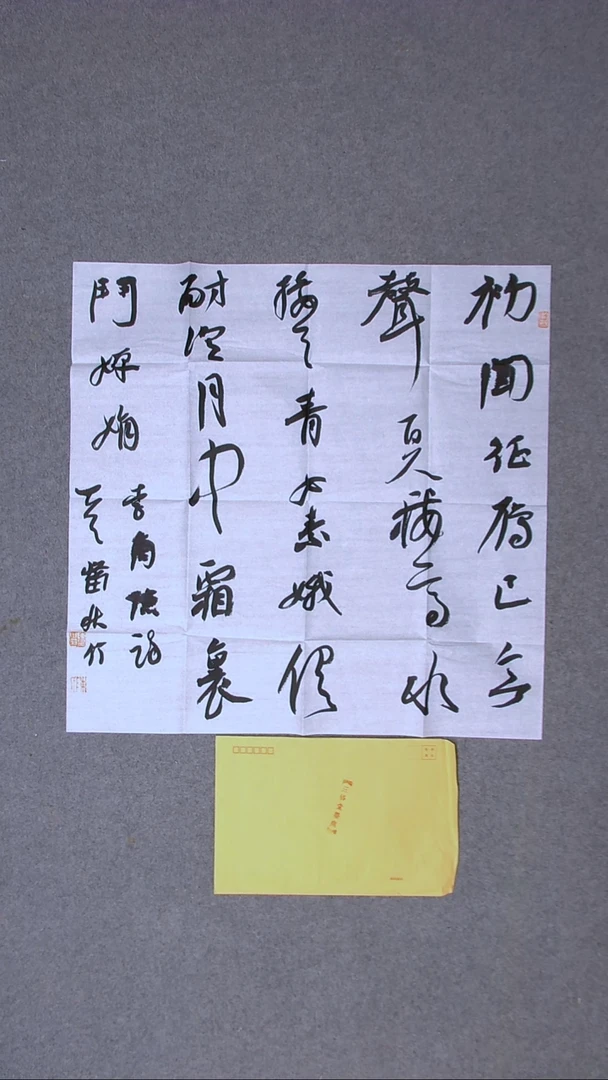 初聞征鴈已無
聲百尺樓高水
接天青女素娥俱
耐冷月中霜裏
鬥嬋娟
李商隱詩